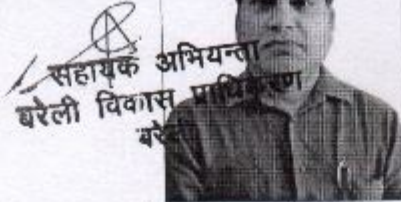 सहायक अभियन्ता
बरेली विकास प्राधिकरण